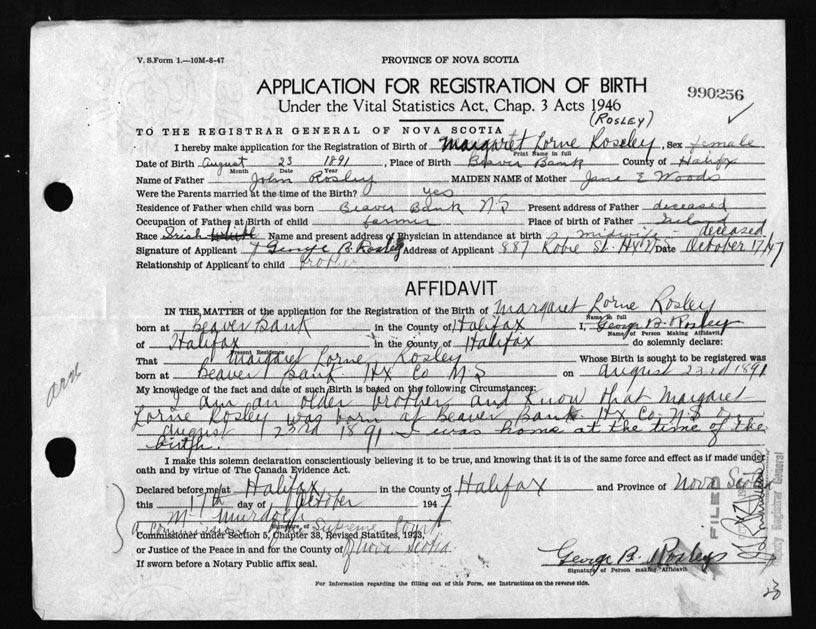 V. S. Form 1.—10M-8-47
PROVINCE OF NOVA SCOTIA
APPLICATION FOR REGISTRATION OF BIRTH
990256
Under the Vital Statistics Act, Chap. 3 Acts 1946
(ROSLEY)
TO THE REGISTRAR GENERAL OF NOVA SCOTIA
I hereby make application for the Registration of Birth of Margaret Lorne Rosley, Sex female
Print Name in full
Date of Birth August 23 1891, Place of Birth Beaver Bank County of Halifax
Month Date Year
Name of Father John Rosley MAIDEN NAME of Mother Jane E Woods
Were the Parents married at the time of the Birth? yes
Residence of Father when child was born Beaver Bank N S Present address of Father deceased
Occupation of Father at Birth of child farmer Place of birth of Father Ireland
Race Irish White Name and present address of Physician in attendance at birth midwife - deceased
Signature of Applicant George B. Rosley Address of Applicant 887 Robie St. Hx N S Date October 17/47
Relationship of Applicant to child brother
AFFIDAVIT
IN THE MATTER of the application for the Registration of Birth of Margaret Lorne Rosley
Name in full
born at Beaver Bank in the County of Halifax I, George B. Rosley
Name of Person Making Affidavit
of Halifax in the County of Halifax do solemnly declare:
Present Residence
That Margaret Lorne Rosley Whose Birth is sought to be registered was
born at Beaver Bank Hx Co N S on August 23rd 1891
My knowledge of the fact and date of such Birth is based on the following Circumstances:
I am an older brother and know that Margaret
Lorne Rosley was born at Beaver Bank Hx Co. N.S.
August 23rd 1891 I was home at the time of the
birth.
I make this solemn declaration conscientiously believing it to be true, and knowing that it is of the same force and effect as if made under
oath and by virtue of The Canada Evidence Act.
Declared before me at Halifax in the County of Halifax and Province of Nova Scotia
this 17th day of October 1947
M Murdoch
Signature of
a commissioner of the Supreme Court
Commissioner under Section 5, Chapter 38, Revised Statutes, 1923,
or Justice of the Peace in and for the County of Nova Scotia
If sworn before a Notary Public affix seal.
George B. Rosley
Signature of Person making Affidavit
For Information regarding the filling out of this Form, see Instructions on the reverse side.
FILED
Deputy Registrar General